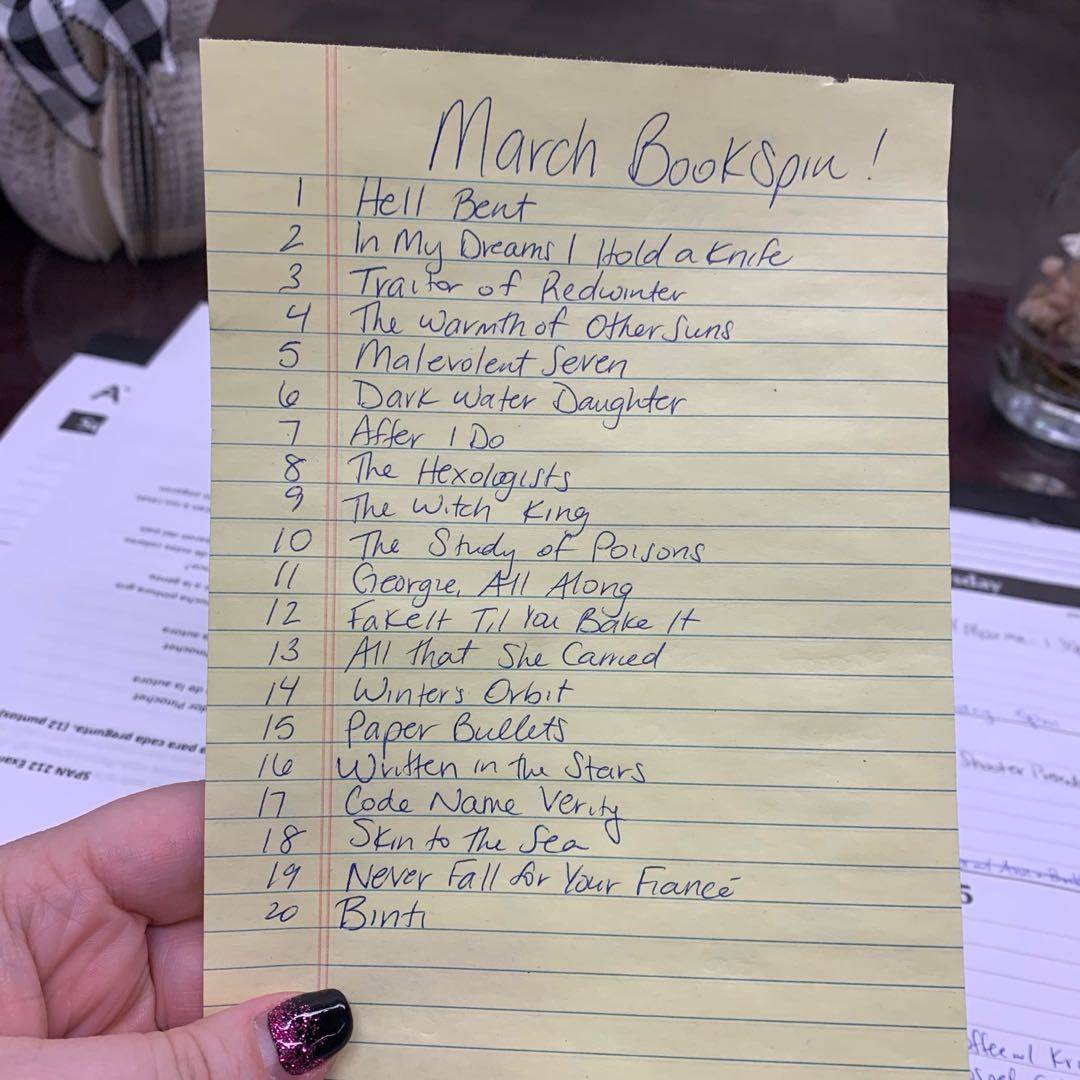 March BookSpin!
1 Hell Bent
2 In My Dreams I Hold a Knife
3 Traitor of Redwinter
4 The Warmth of Other Suns
5 Malevolent Seven
6 Dark Water Daughter
7 After I Do
8 The Hexologists
9 The Witch King
10 The Study of Poisons
11 Georgie, All Along
12 Fake It Til You Bake It
13 All That She Carried
14 Winter's Orbit
15 Paper Bullets
16 Written in the Stars
17 Code Name Verity
18 Skin to the Sea
19 Never Fall for Your Fianceé
20 Binti
SPAN 212 Exam
para cada pregunta. (12 puntos)
de la autora
5